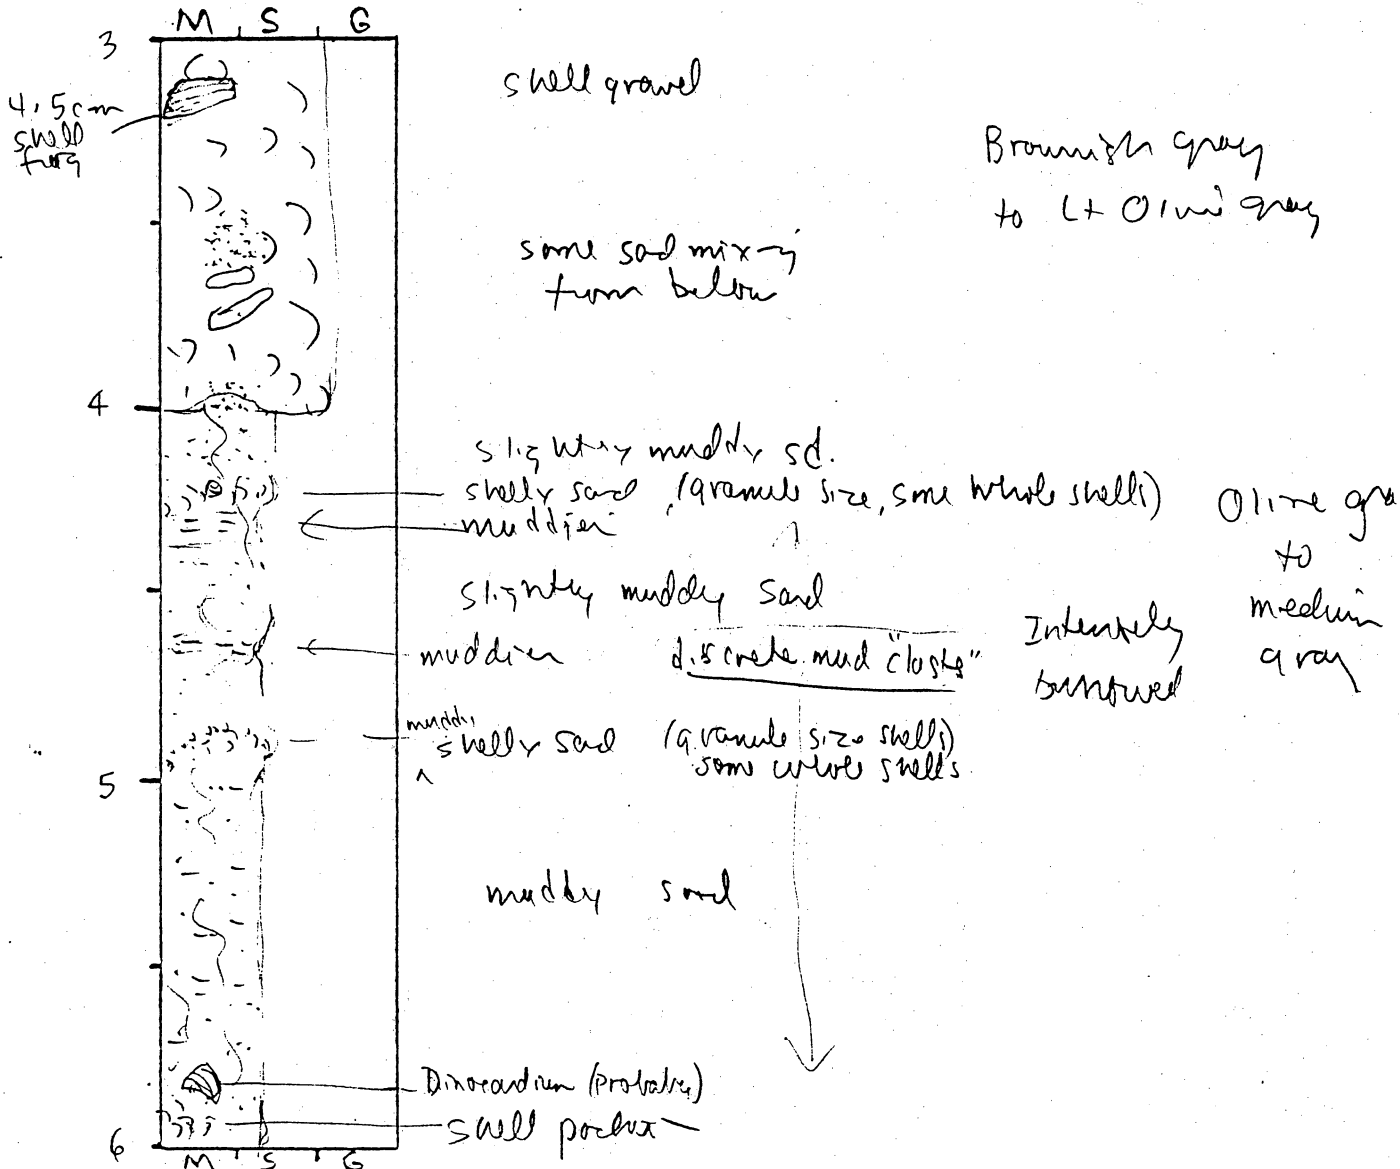 M S G
3
shell gravel
4.5cm
shell
frag
Brownish gray
to Lt Olive gray
some sad mixing
from below
4
slightly muddy sd.
shelly sand (granule size, some whole shells)
muddier
Olive gra
to
medium
gray
slightly muddy sand
muddier
discrete mud "clasts"
Intensely
burrowed
muddy
shelly sad (granule size shells)
some whole shells
5
muddy sand
Dinocardium (probably)
shell pocket
6
M S G